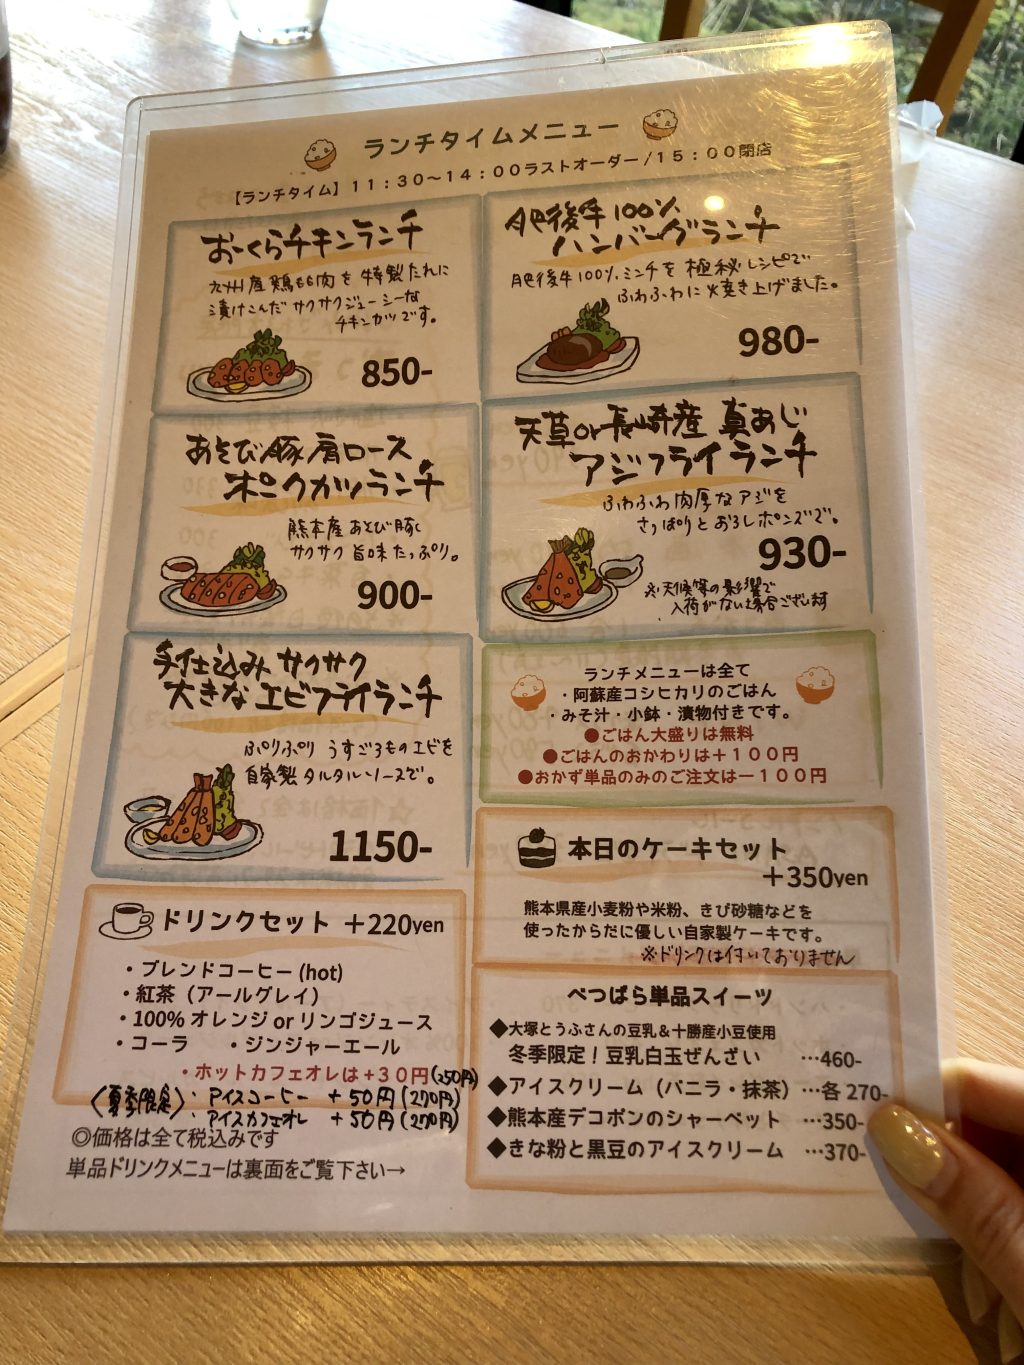 ランチタイムメニュー
【ランチタイム】11：30～14：00ラストオーダー/15：00閉店
おーくらチキンランチ
九州産鶏もも肉を特製たれに
漬けこんだサクサクジューシーな
チキンカツです。
850-
肥後牛100%
ハンバーグランチ
肥後牛100%ミンチを極秘レシピで
ふわふわに焼き上げました。
980-
あそび豚肩ロース
ポークカツランチ
熊本産あそび豚。
サクサク旨味たっぷり。
900-
天草or長崎産 真あじ
アジフライランチ
ふわふわ肉厚なアジを
さっぱりとおろしポンズで。
930-
※天候等の影響で
入荷がない場合ございます
手仕込みサクサク
大きなエビフライランチ
ぷりぷり うすごろものエビを
自家製タルタルソースで。
1150-
ランチメニューは全て
・阿蘇産コシヒカリのごはん
・みそ汁・小鉢・漬物付きです。
●ごはん大盛りは無料
●ごはんのおかわりは＋１００円
●おかず単品のみのご注文は－１００円
ドリンクセット ＋220yen
・ブレンドコーヒー(hot)
・紅茶（アールグレイ）
・100%オレンジorリンゴジュース
・コーラ ・ジンジャーエール
・ホットカフェオレは＋３０円(250円)
〈夏季限定〉：アイスコーヒー ＋50円(270円)
アイスカフェオレ ＋50円(270円)
◎価格は全て税込みです
単品ドリンクメニューは裏面をご覧下さい→
本日のケーキセット
＋350yen
熊本県産小麦粉や米粉、きび砂糖などを
使ったからだに優しい自家製ケーキです。
※ドリンクは付いておりません
べつばら単品スイーツ
◆大塚とうふさんの豆乳＆十勝産小豆使用
冬季限定！豆乳白玉ぜんざい …460-
◆アイスクリーム（バニラ・抹茶）…各 270-
◆熊本産デコポンのシャーベット …350-
◆きな粉と黒豆のアイスクリーム …370-